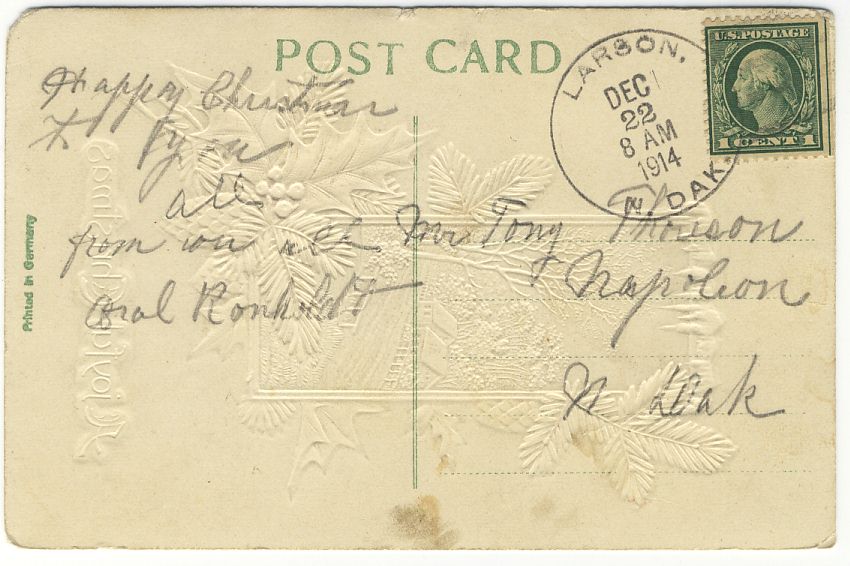 POST CARD
LARSON,
DEC
22
8 AM
1914
N. DAK.
U.S. POSTAGE
1 CENT 1
Happy Christmas
to you
all
from us all
Oral Ronholdt
Mr Tony Thowson
Napoleon
N Dak
Printed in Germany